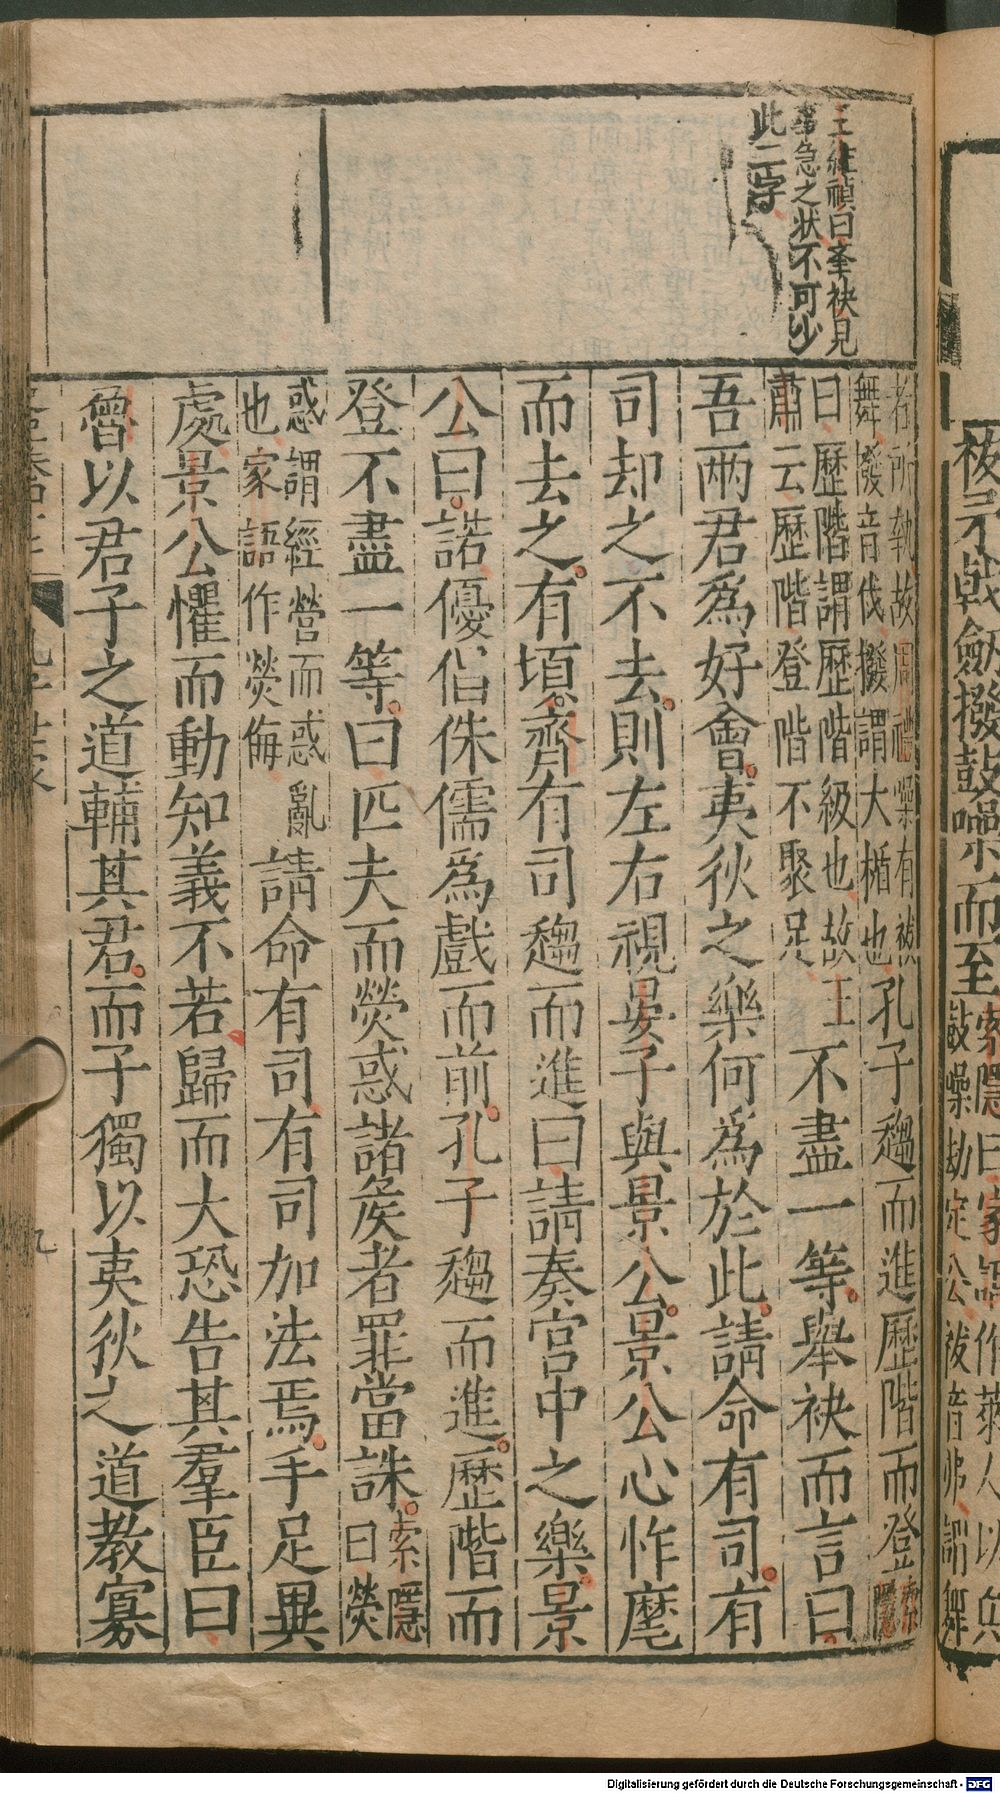 祓矛戟劒撥鼓噪而至
索隱曰家語作萊人以兵
鼓噪劫定公祓音弗謂舞
王維禎曰舉袂見
事急之狀不可少
此二字
者所執故周禮樂有祓
舞撥音伐撥謂大楯也
孔子趨而進歷階而登
索隱
曰歷階謂歷階級也故王
肅云歷階登階不聚足
不盡一等舉袂而言曰
吾兩君爲好會夷狄之樂何爲於此請命有司有
司却之不去則左右視晏子與景公景公心怍麾
而去之有頃齊有司趨而進曰請奏宮中之樂景
公曰諾優倡侏儒爲戲而前孔子趨而進歷階而
登不盡一等曰匹夫而熒惑諸矦者罪當誅
索隱
曰熒
惑謂經營而惑亂
也家語作熒侮
請命有司有司加法焉手足異
處景公懼而動知義不若歸而大恐告其羣臣曰
魯以君子之道輔其君而子獨以夷狄之道教寡
孔子世家
九
Digitalisierung gefördert durch die Deutsche Forschungsgemeinschaft - DFG